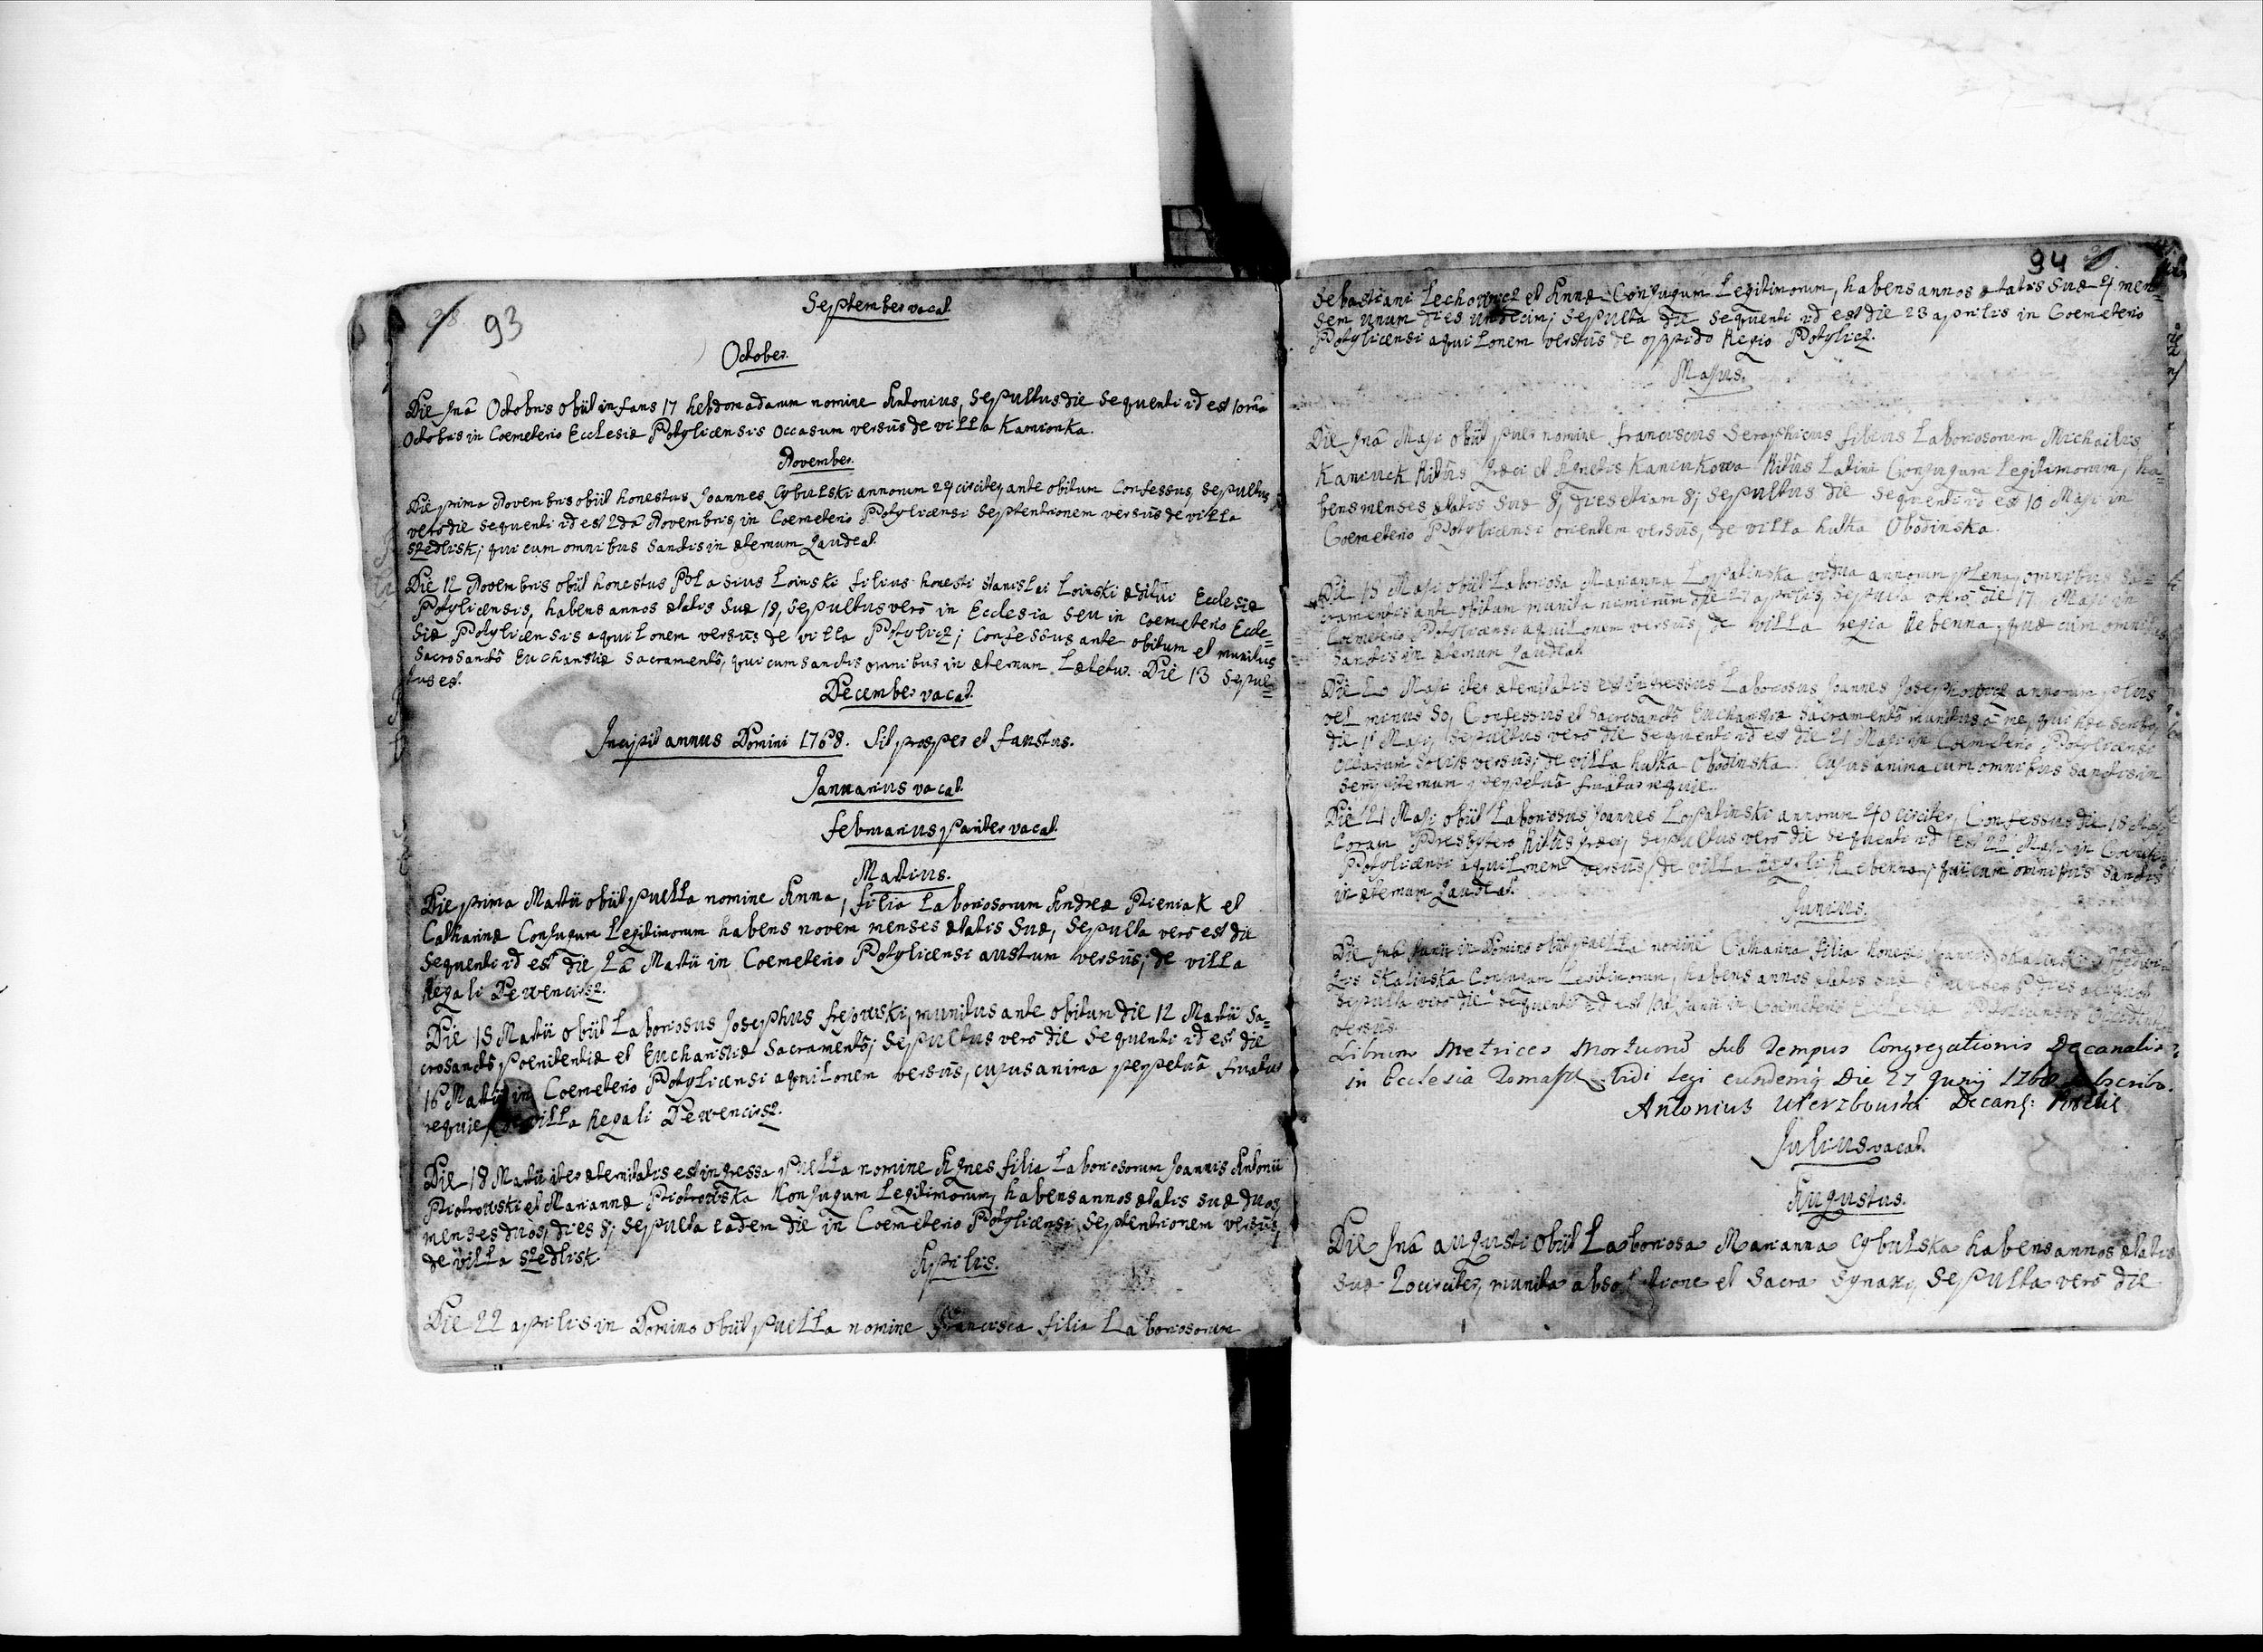 93
September vacat.
October.
Die 9nâ Octobris obiit infans 17 hebdomadarum nomine Antonius, sepultus die sequenti id est 10mâ
Octobris in Coemeterio Ecclesiæ Potylicensis Occasum versùs de villa Kamionka.
November.
Die prima Novembris obiit honestus Joannes Cybulski annorum 24 circiter, ante obitum Confessus, sepultus
verò die sequenti id est 2dâ Novembris, in Coemeterio Potylicensi Septentrionem versùs de villa
Szedlisk; qui cum omnibus Sanctis in æternum gaudeat.
Die 12 Novembris obiit honestus Blasius Loinski filius honesti Stanislai Loinski æditui Ecclesiæ
Potylicensis, habens annos ætatis suæ 18, sepultus verò in Ecclesia seu in Coemeterio Eccle=
siæ Potylicensis aquilonem versùs de villa Potylicz; Confessus ante obitum et munitus
Sacrosanctô Eucharistiæ Sacramentô, qui cum sanctis omnibus in æternum lætetur. Die 13 sepul=
tus est.
December vacat.
Incipit annus Domini 1768. Sit prosper et faustus.
Januarius vacat.
februarius pariter vacat.
Martius.
Die prima Martii obiit puella nomine Anna, filia Laboriosorum Andreæ Pieniak et
Catharinæ Conjugum Legitimorum habens novem menses ætatis suæ, sepulta verò est die
sequenti id est die 2â Martii in Coemeterio Potylicensi austrum versùs; de villa
Regali Dewencirz.
Die 15 Martii obiit Laboriosus Josephus frejowski, munitus ante obitum die 12 Martii Sa=
crosanctô poenitentiæ et Eucharistiæ Sacramentô; sepultus verò die sequenti id est die
16 Martii in Coemeterio Potylicensi aquilonem versùs, cujus anima perpetuâ fruatur
requie de villa Regali Dewencirz.
Die 18 Martii iter æternitatis est ingressa puella nomine Agnes filia Laboriosorum Joannis Antonii
Piotrowski et Mariannæ Piotrowska Conjugum Legitimorum, habens annos ætatis suæ duos,
menses duos, dies 8; sepulta eadem die in Coemeterio Potylicensi Septentrionem versùs,
de villa Szedlisk.
Aprilis.
Die 22 aprilis in Domino obiit puella nomine francisca filia Laboriosorum
94
Sebastiani Lechowicz et Annæ Conjugum Legitimorum, habens annos ætatis suæ 4 men=
sem unum dies undecim; sepulta die sequenti id est die 23 aprilis in Coemeterio
Potylicensi aquilonem versùs de oppido Regio Potylicz.
Majus.
Die 9nâ Maji obiit puer nomine franciscus Seraphicus filius Laboriosorum Michaelis
Kanciuck Ritûs Græci et Agnetis Kanciukowa Ritûs Latini Conjugum Legitimorum, ha=
bens menses ætatis suæ 8, dies etiam 8; sepultus die sequenti id est 10 Maji in
Coemeterio Potylicensi orientem versùs, de villa hutka Obodinska.
Die 15 Maji obiit Laboriosa Marianna Lopatinska vidua annorum plena, omnibus Sa=
cramentis ante obitum munita nimirum die 27 aprilis, sepulta verò die 17 Maji in
Coemeterio Potylicensi aquilonem versùs, de villa regia Rebenna, quæ cum omnibus
Sanctis in æternum gaudeat.
Die 20 Maji iter æternitatis est ingressus Laboriosus Joannes Josephowicz annorum plus
vel minus 50, Confessus et Sacrosanctô Eucharistiæ Sacramentô munitus à me, qui hæc scribo,
die Maji, sepultus verò die sequenti id est die 21 Maji in Coemeterio Potylicensi
Occasum Solis versùs; de villa hutka Obodinska. Cujus anima cum omnibus Sanctis in
sempiternum perpetuâ fruatur requie.
Die 21 Maji obiit Laboriosus Joannes Lopatinski annorum 40 circiter, Confessus die 18 Maji
Coram Presbytero Ritûs græci, sepultus verò die sequenti id est 22 Maji in Coemeterio
Potylicensi aquilonem versùs, de villa Regali Rebenna; qui cum omnibus Sanctis
in æternum gaudeat.
Junius.
Die 9nâ Junii in Domino obiit puella nomine Catharina filia honesti Joannis Skalinski et
Skalinska Conjugum Legitimorum, habens annos ætatis suæ menses 6 dies aliquot
sepulta verò die sequenti id est 10â Junii in Coemeterio Ecclesiæ Potylicensis Occidentem
versùs.
Librum Metrices Mortuorũ sub Tempus Congregationis Decanalis
in Ecclesia Vidi legi eundemq. Die 27 Junij 1768 subscribo.
Antonius Wierzbowski Decanq:
Julius vacat.
Augustus.
Die 9nâ augusti obiit Laboriosa Marianna Cybulska habens annos ætatis
suæ 20 circiter, munita absolutione et Sacra Synaxi, sepulta verò die